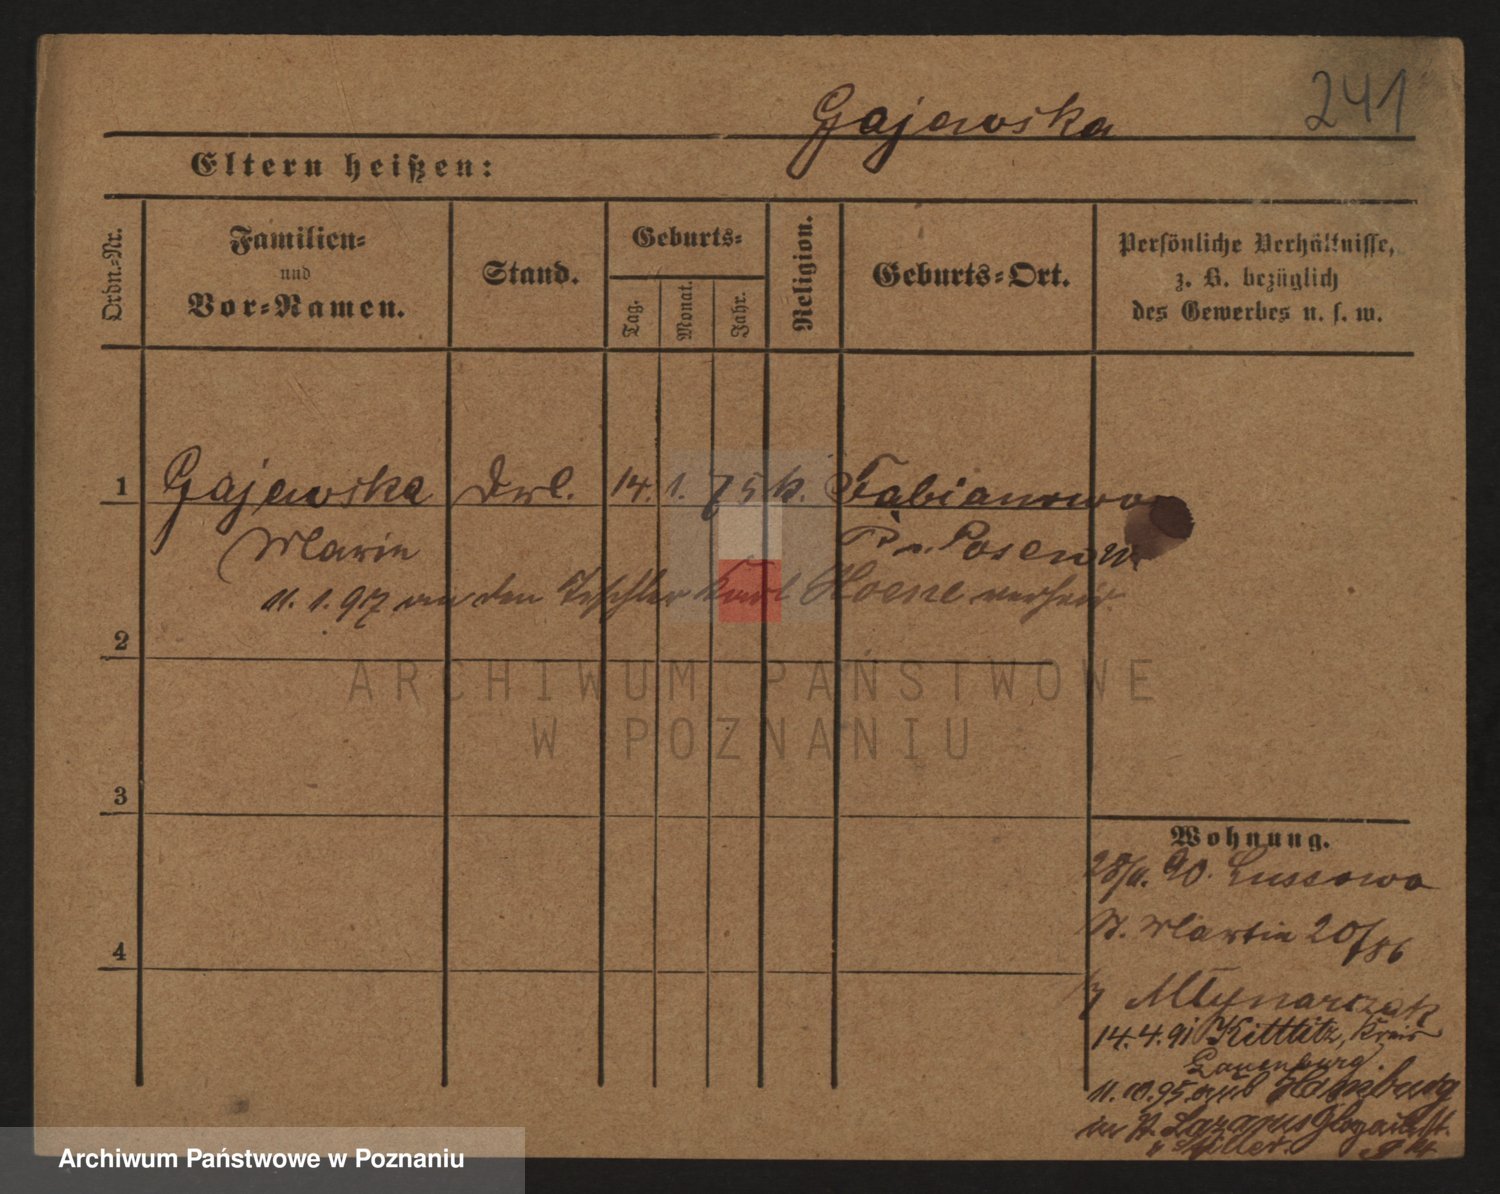 Gajewska 241
Eltern heißen:
Ordn.-Nr. Familien- und Vor-Namen. Stand. Geburts- Tag. Monat. Jahr. Religion. Geburts-Ort. Persönliche Verhältnisse, z. B. bezüglich des Gewerbes u. s. w.
1 Gajewska 14. 1. 75 k. Fabianowo
Marie Posen W.
11. 1. 97 an den Tischler Karl Hoene verheir.
2
3
4
Wohnung.
90. Lussowo
St. Martin 20/86
Mlynarczak
14.4.91 Kittlitz, Kreis
Lauenburg.
11.10.95 aus Hamburg
in St. Lazarus Glogauerst.
ARCHIWUM PAŃSTWOWE
W POZNANIU
Archiwum Państwowe w Poznaniu